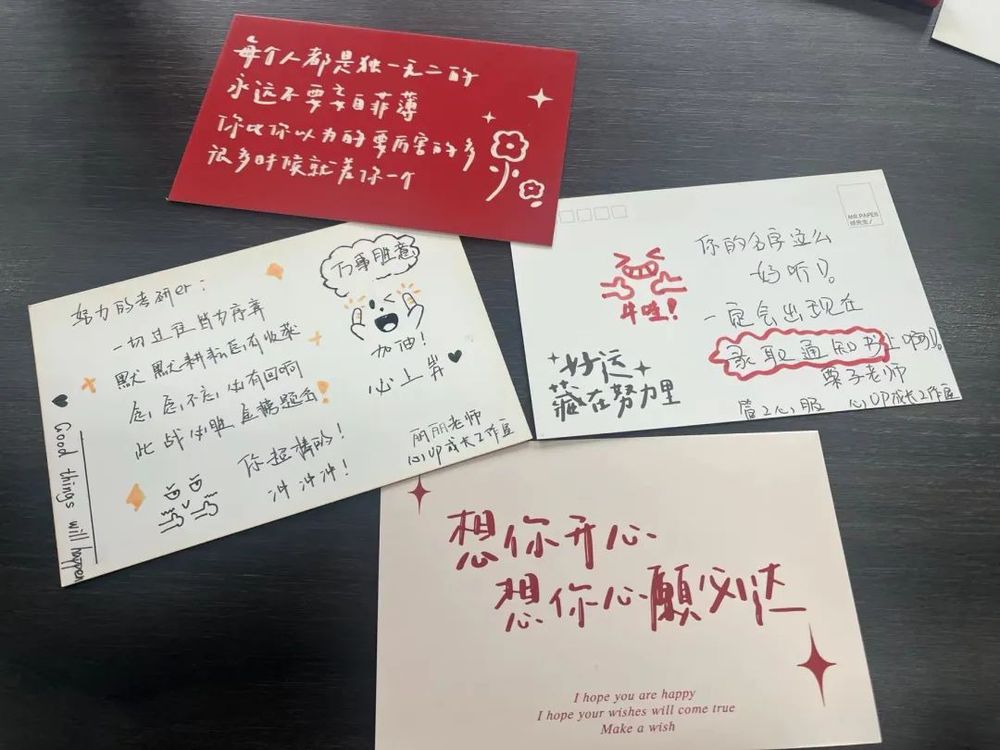 每个人都是独一无二的
永远不要妄自菲薄
你比你以为的要厉害的多
很多时候就差你一个
努力的考研er:
一切过往皆为序章
默默耕耘后有收获
念念不忘,必有回响
此战必胜 金榜题名!
你超棒的!
冲冲冲!
万事胜意
加油!
必上岸
丽丽老师
心UP成长工作室
Good things will happen
MR.PAPER
你的名字这么
好听!
一定会出现在
录取通知书上啊!
栗子老师
管工心服 心UP成长工作室
牛哇!
好运
藏在努力里
想你开心
想你心願必达
I hope you are happy
I hope your wishes will come true
Make a wish